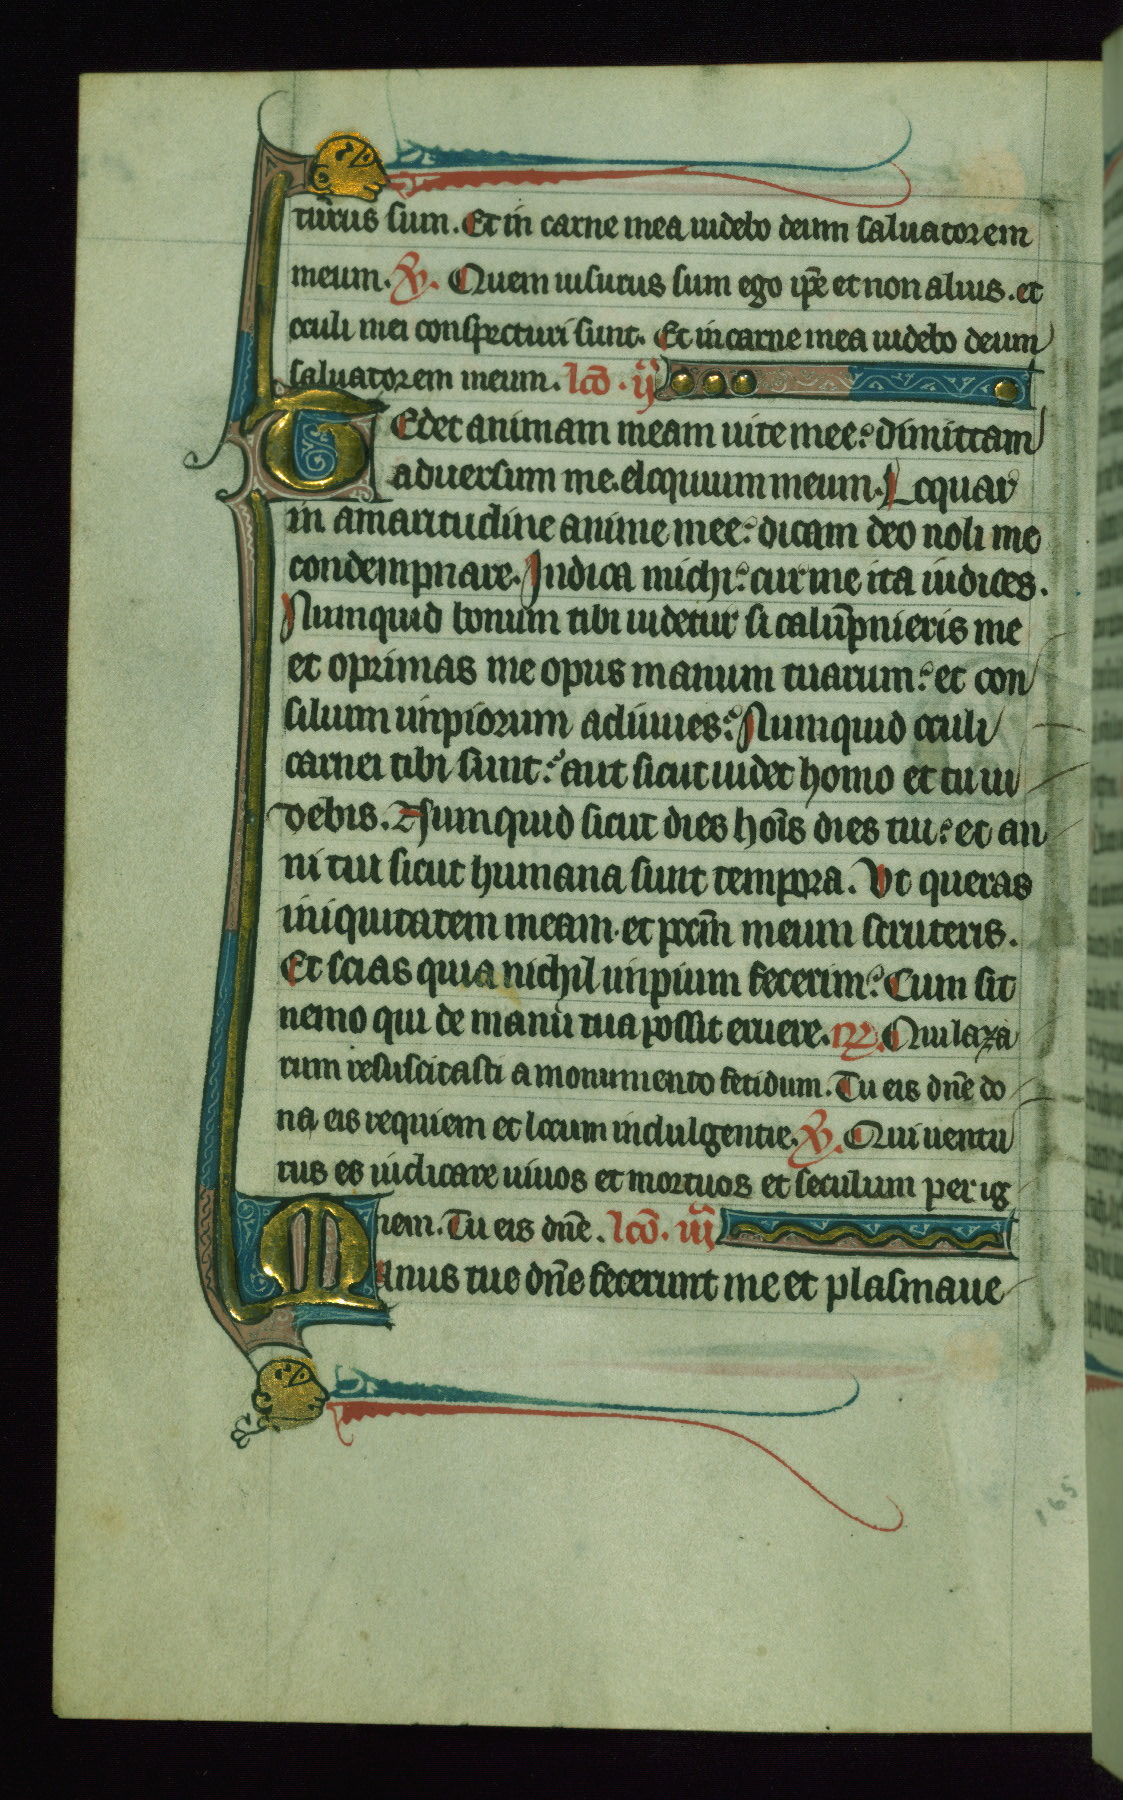 turus sum. Et in carne mea uidebo deum saluatorem
meum. ℣. Quem uisurus sum ego ip̅e et non alius. et
oculi mei conspecturi sunt. Et in carne mea uidebo deum
saluatorem meum. lc̅o. ij
Tedet animam meam uite mee: dimittam
aduersum me. eloquium meum. Loquar
in amaritudine anime mee: dicam deo noli me
condempnare. Indica michi: cur me ita iudices.
Numquid bonum tibi uidetur si calu̅pnieris me
et oprimas me opus manum tuarum: et con
silium inpiorum adiuues: Numquid oculi
carnei tibi sunt: aut sicut uidet homo et tu ui
debis. Numquid sicut dies ho̅is dies tui: et an
ni tui sicut humana sunt tempora. Ut queras
iniquitatem meam. et pcc̅m meum scruteris.
Et scias quia nichil inpium fecerim: Cum sit
nemo qui de manu tua possit eruere. ℟. Qui laza
rum resuscitasti a monumento fetidum. Tu eis dn̅e do
na eis requiem et locum indulgentie. ℣. Qui uentu
rus es iudicare uiuos et mortuos et seculum per ig
nem. Tu eis dn̅e. lc̅o. iij
Manus tue dn̅e fecerunt me et plasmaue
165